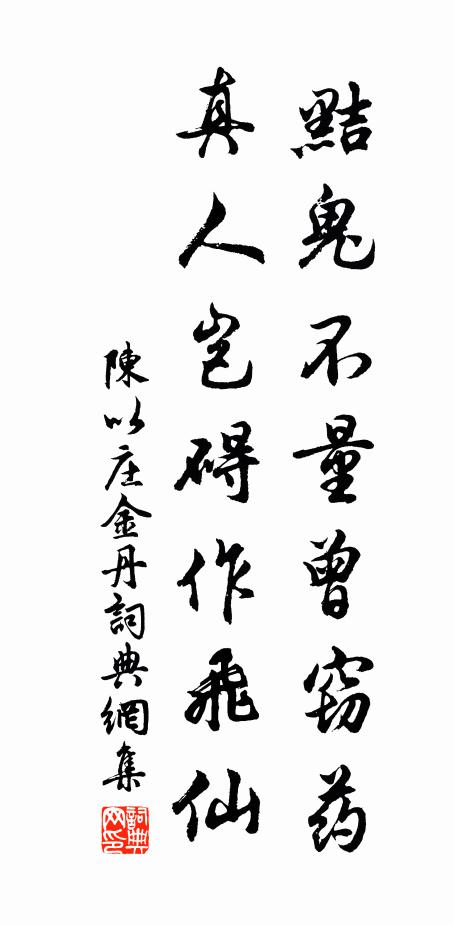 黠鬼不量曾窃药
真人岂碍作飛仙
陳以庄金丹詞典網集
詞典
网印